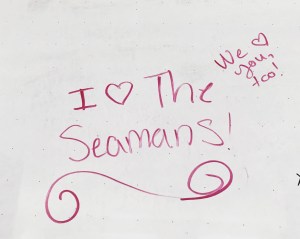 I ♡ The
Seamans!
We ♡
you,
too!